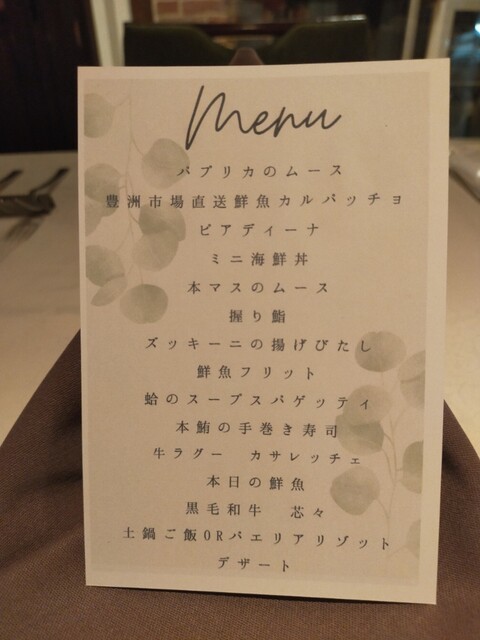 Menu
パプリカのムース
豊洲市場直送鮮魚カルパッチョ
ピアディーナ
ミニ海鮮丼
本マスのムース
握り鮨
ズッキーニの揚げびたし
鮮魚フリット
蛤のスープスパゲッティ
本鮪の手巻き寿司
牛ラグー カサレッチェ
本日の鮮魚
黒毛和牛 芯々
土鍋ご飯ORパエリアリゾット
デザート